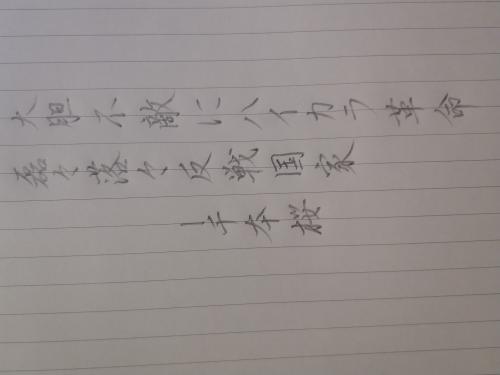 大胆不敵にハイカラ革命
磊々落々反戦国家
千本桜